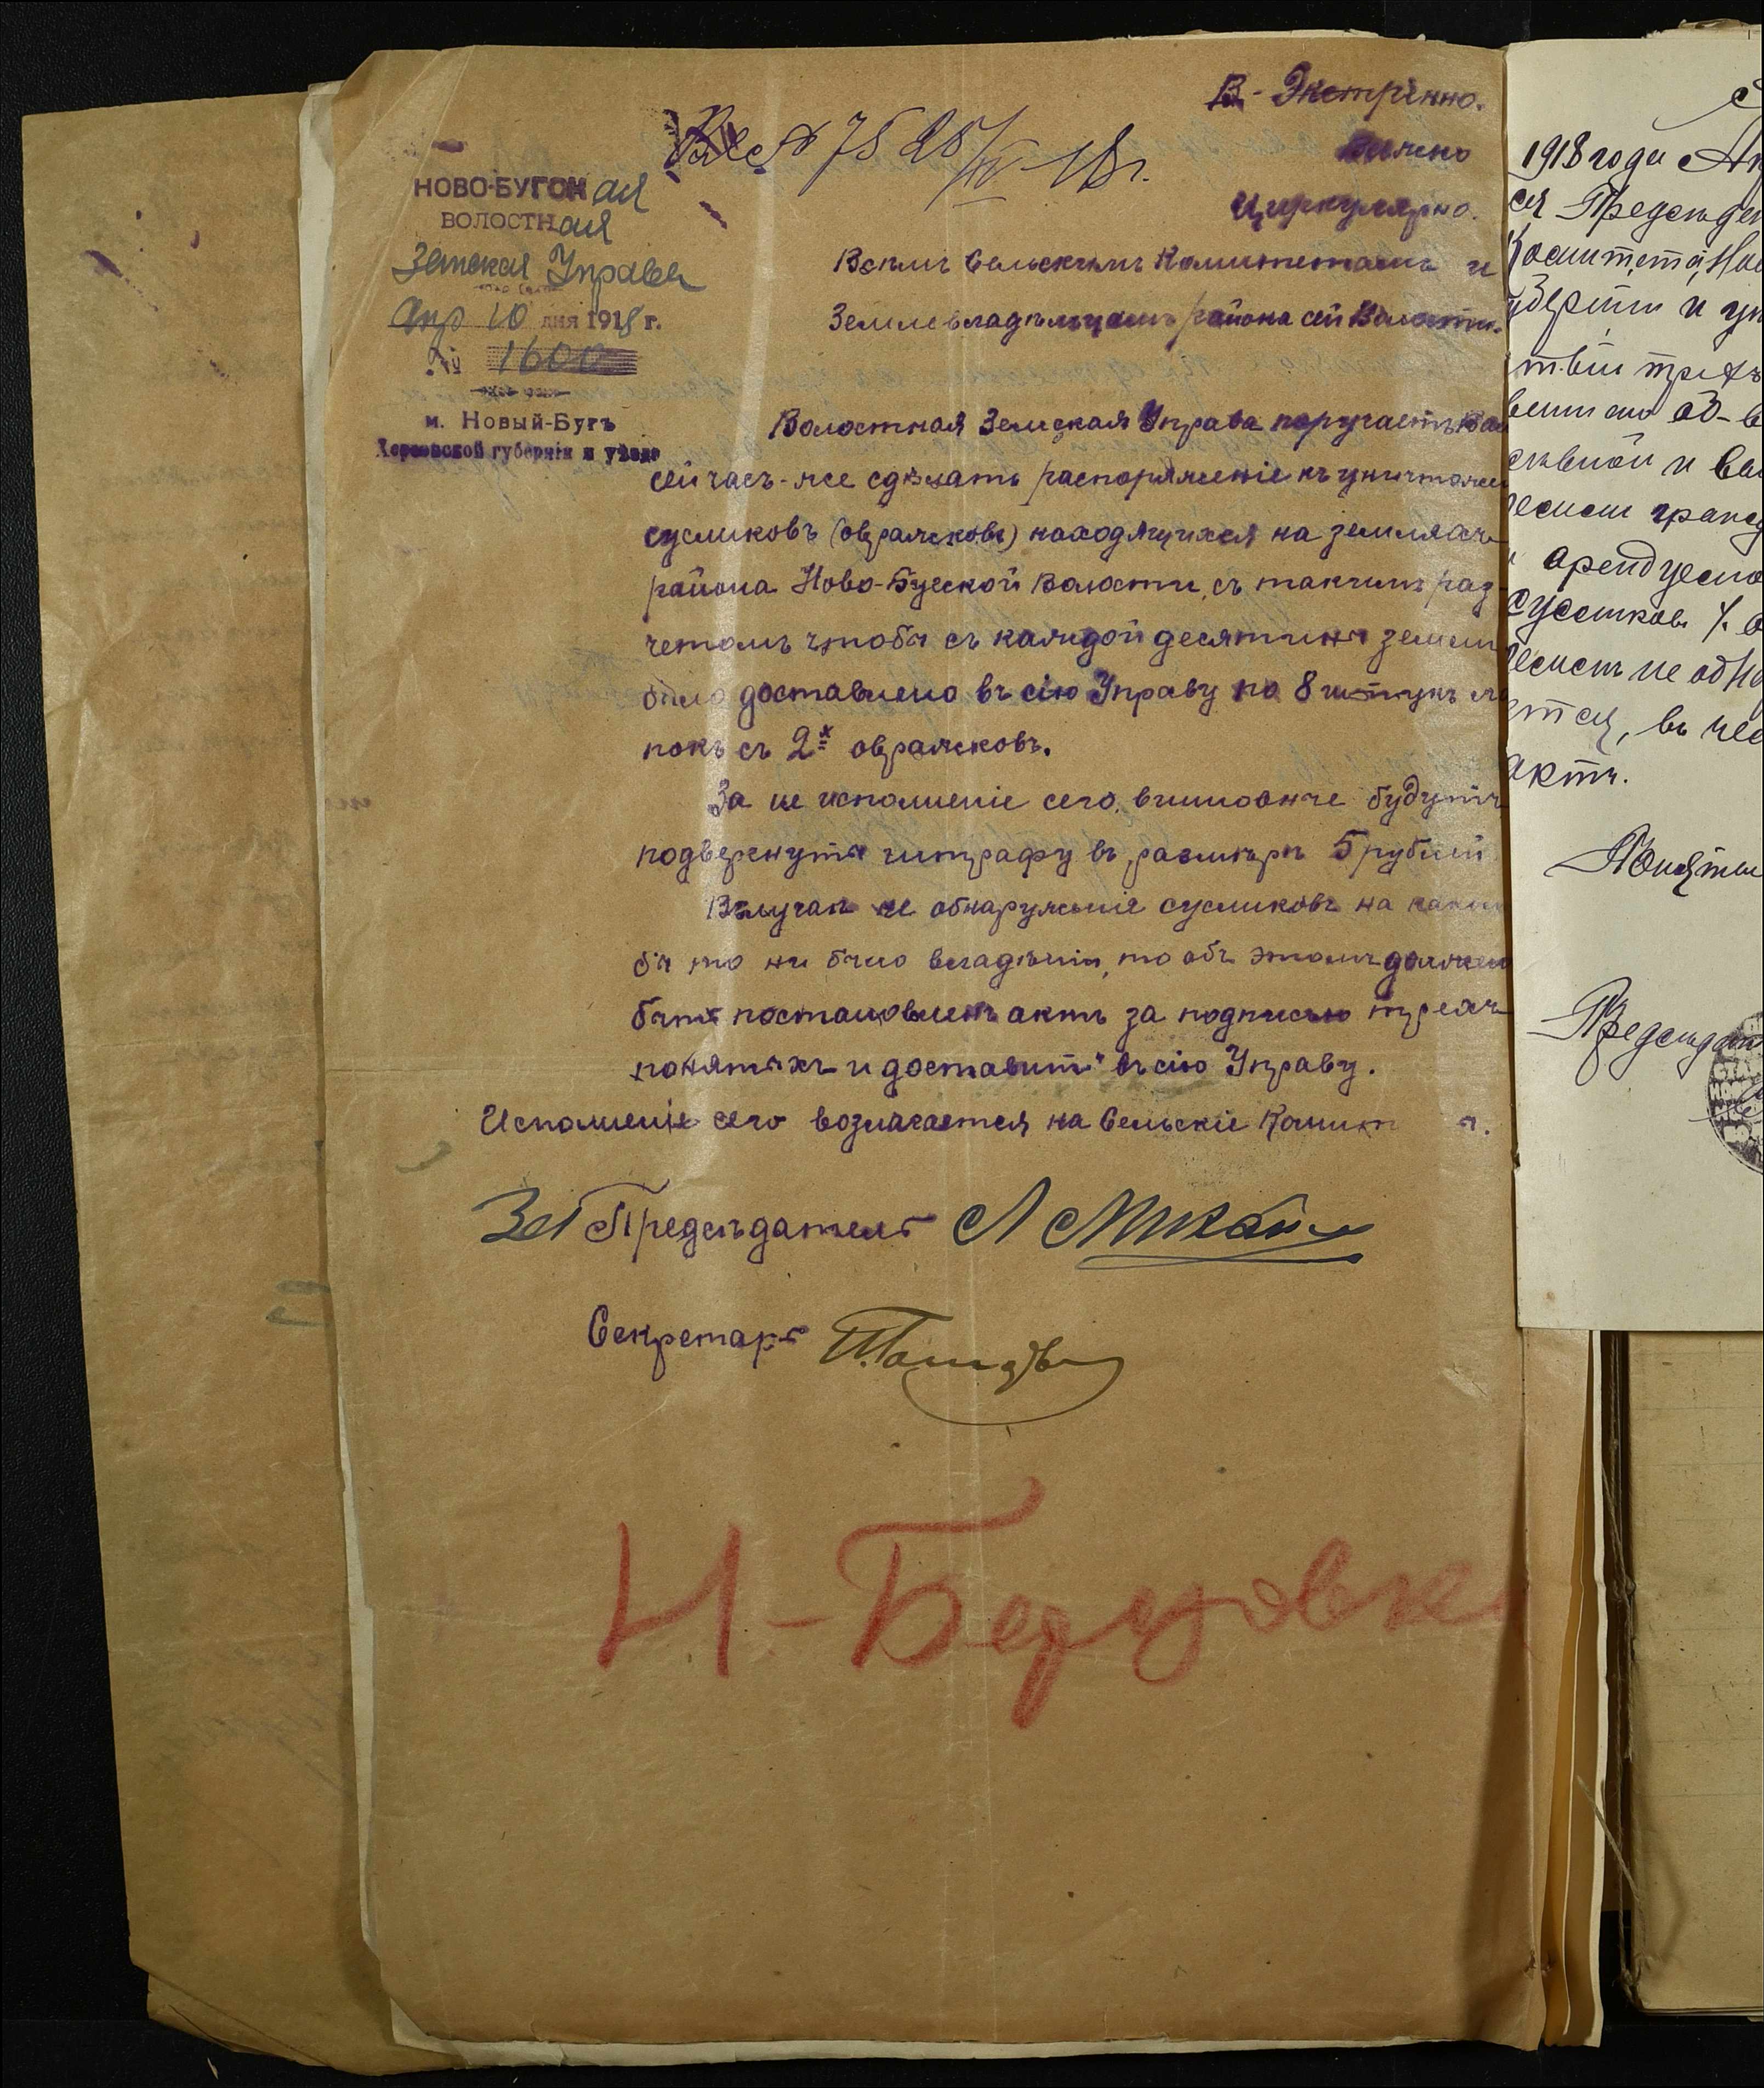 В-Экстренно.
Вх № 75 25/IV-18 г.
Важно
Циркулярно.
НОВО-БУГСКая
ВОЛОСТНая
Земская Управа
Апр 10 дня 1918 г.
№ 1600
м. Новый-Бугъ
Херсонской губерніи и уѣзда
Всѣмъ Сельскимъ Комитетамъ и
Землевладѣльцамъ района сей Волости.
Волостная Земская Управа поручаетъ Вам
сейчасъ-же сдѣлать распоряженіе къ уничтожен
сусликовъ (овражковъ) находящихся на земляхъ
района Ново-Бугской Волости, съ такимъ раз-
четомъ чтобы съ каждой десятины земли
было доставлено въ сію Управу по 8 штукъ ла
покъ съ 2х овражковъ.
За не исполненіе сего, виновные будутъ
подвергнуты штрафу въ размѣрѣ 5 рублей
Вслучаѣ не обнаруженіе сусликовъ на каком
бы то ни было владѣніи, то объ этомъ должен
быть постановленъ актъ за подписью трехъ
понятыхъ и доставить въ сію Управу.
Исполненіе сего возлагается на Сельскіе Комит
Зам Предсѣдатель Л
Секретарь
Н-
1918 года Ап
ся Предсѣдат
Комитета, Но
губерніи и у
тви трехъ
и арендуемо
Сусликовъ
не обна
ется, въ че
актъ.
Понятые
Предсѣдат